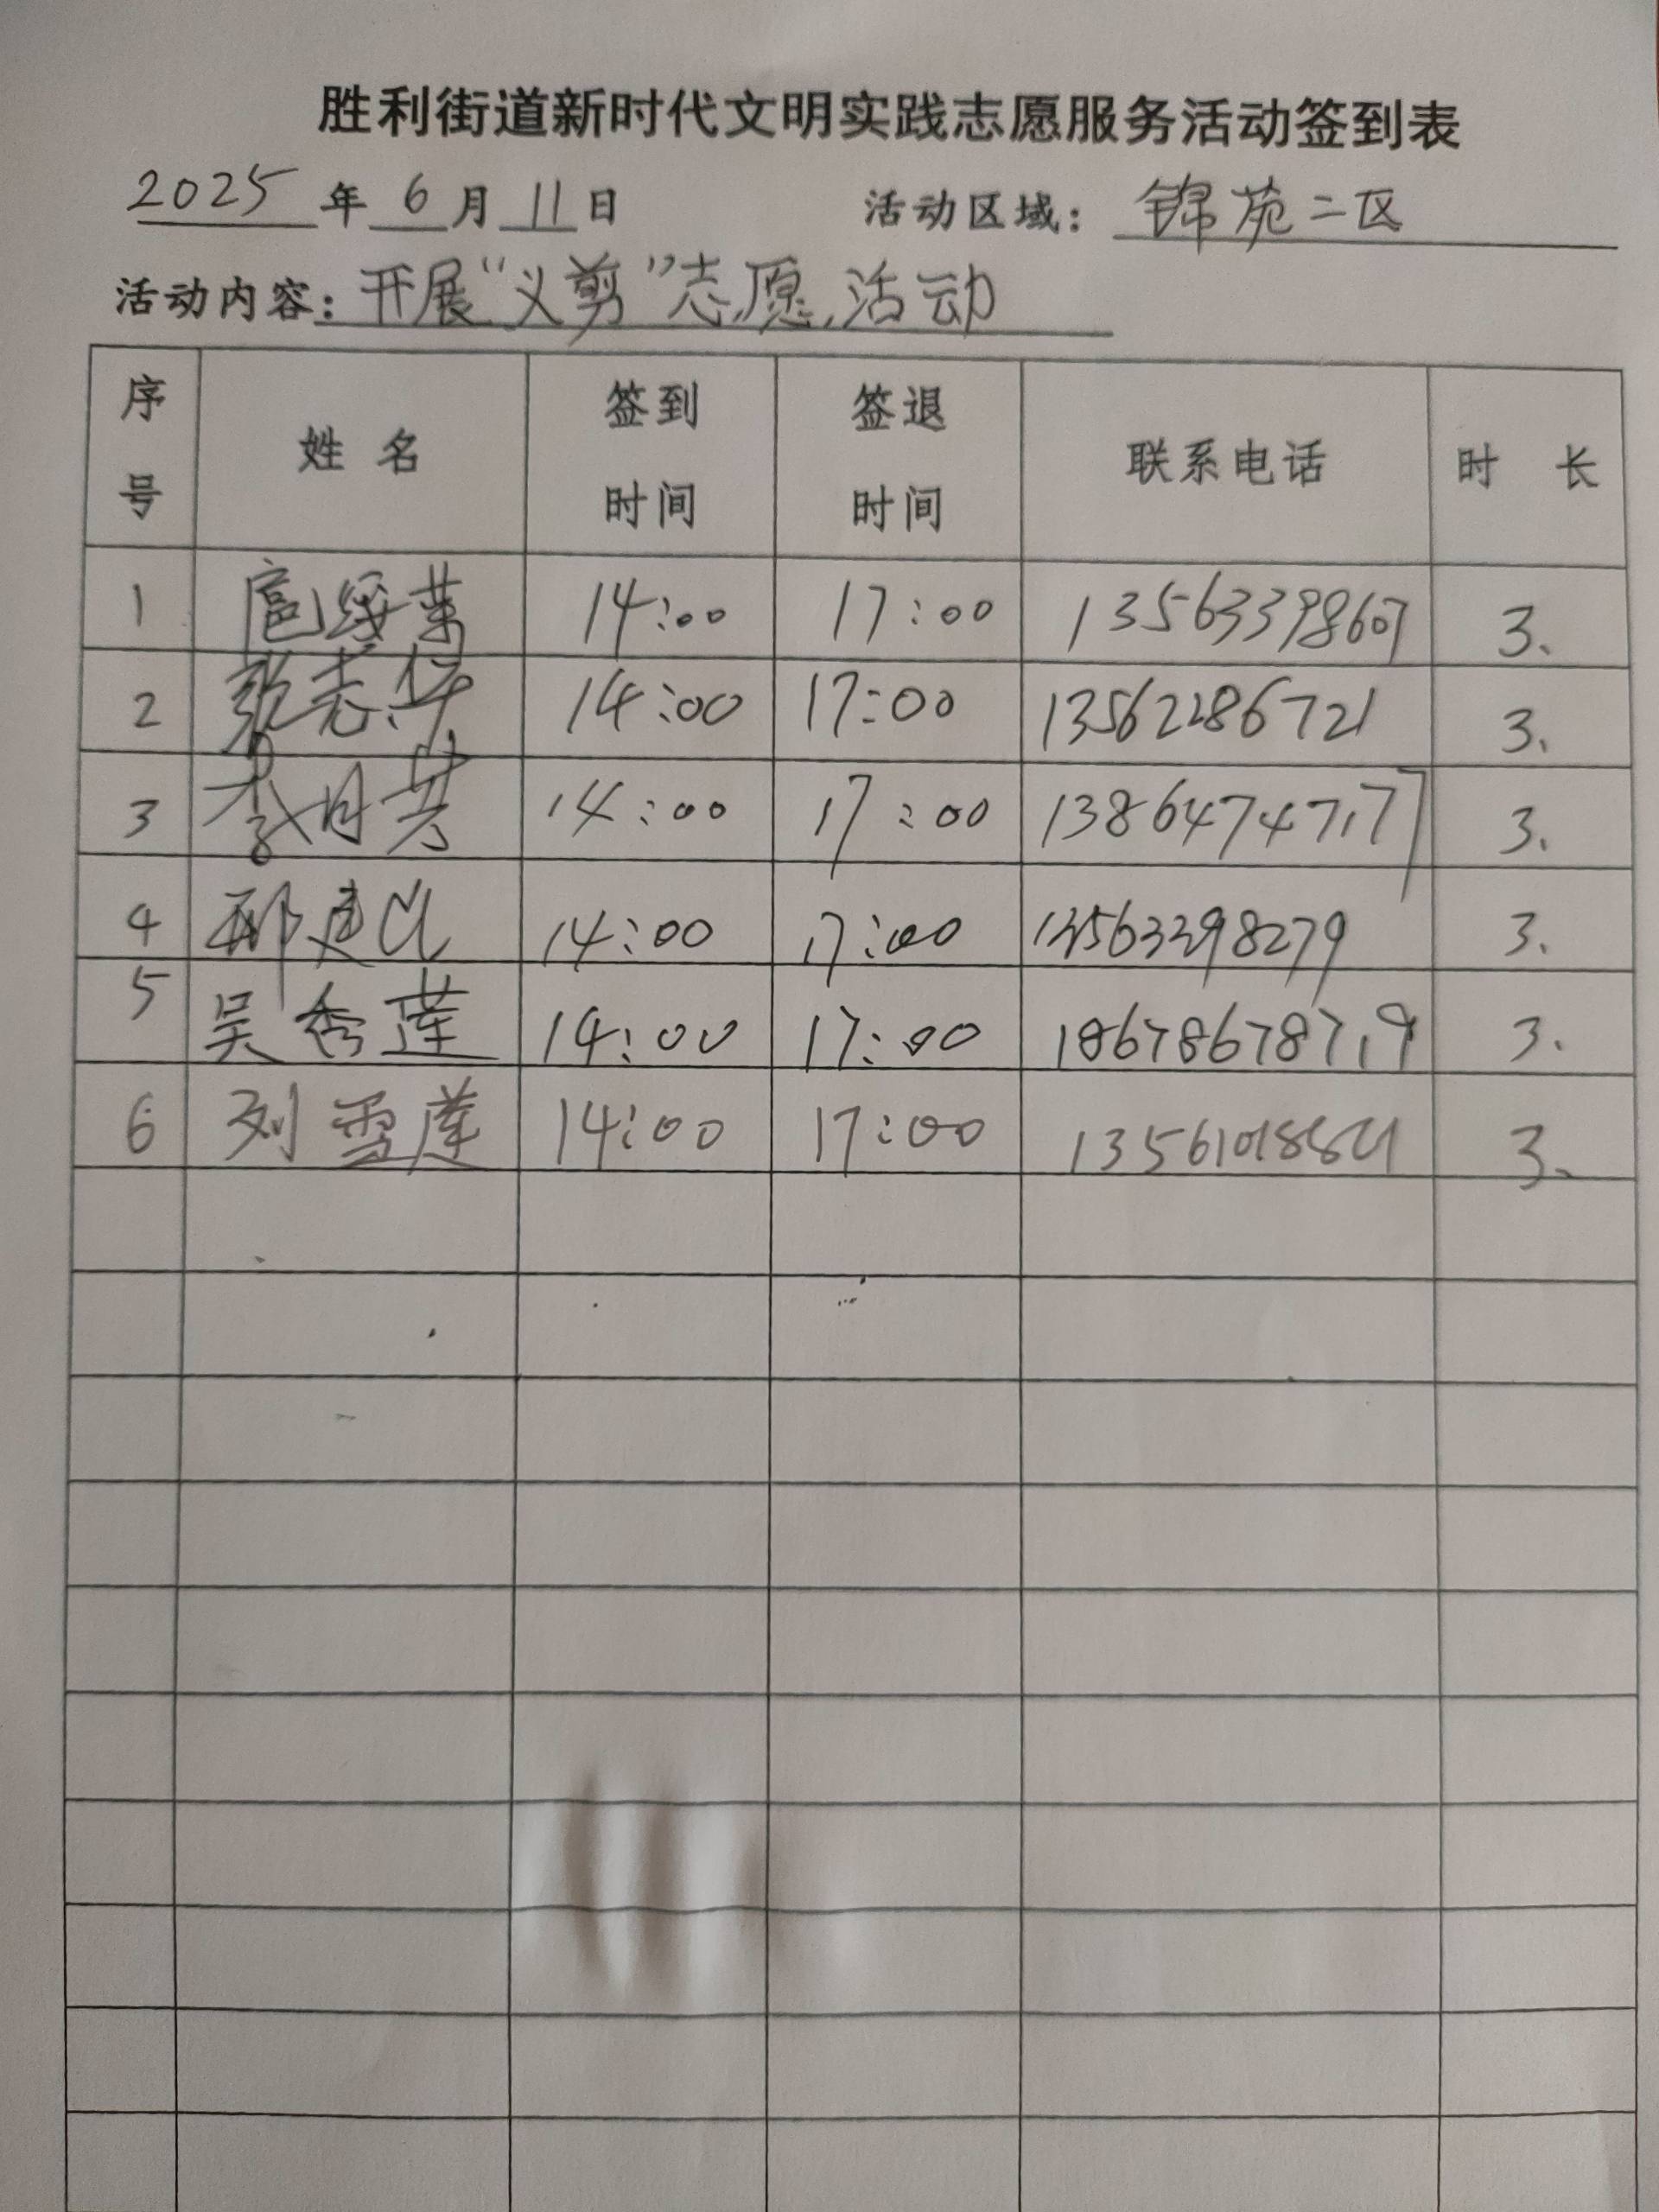 胜利街道新时代文明实践志愿服务活动签到表
2025 年 6 月 11 日 活动区域: 锦苑二区
活动内容: 开展“义剪”志愿活动
序号 姓名 签到时间 签退时间 联系电话 时长
1 14:00 17:00 13563398607 3、
2 张志华 14:00 17:00 13562286721 3、
3 李月芳 14:00 17:00 3、
4 14:00 17:00 13563398279 3、
5 吴秀莲 14:00 17:00 18678678719 3.
6 刘雪莲 14:00 17:00 3、